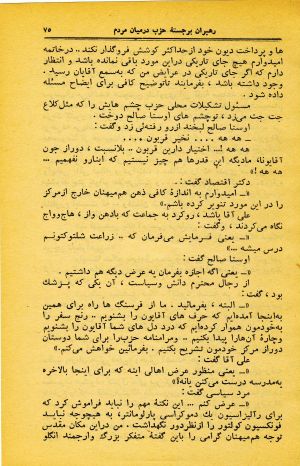 رهبران برجستهٔ حزب درمیان مردم
۷۵
ها و پرداخت دیون خود ازحداکثر کوشش فروگذار نکند .. درخاتمه
امیدوارم هیچ جای تاریکی دراین مورد باقی نمانده باشد و انتظار
دارم که اگر جای تاریکی در عرایض من که بسمع آقایان رسید ،
وجود داشته باشد ، بفرمایند تاتوضیح کافی برای ایضاح مسئله
داده شود .
مسئول تشکیلات محلی حزب چشم هایش را که مثل کلاغ
جت جت می زد ، توچشم های اوسنا صالح دوخت .
اوسنا صالح لبخند ازرو رفته‌ئی زد وگفت :
ــ هه هه ... نخیر قربون ....
هه هه !.... اختیار دارین قربون .. بلانسبت ، دوراز جون
آقایونا، مادیگه این قدرها هم چیز نیستیم که اینارو نفهمیم ...
هه هه !»
دکتر اقتصاد گفت :
ــ امیدوارم به اندازهٔ کافی ذهن هم‌میهنان خارج ازمرکز
را در این مورد تنویر کرده باشم.»
علی آقا باشد ، روکرد به جماعت که بادهن واز ، هاج‌وواج
نگاه می‌کردند ، وگفت :
«ــ یعنی فرمایش می‌فرمان که .. زراعت شلتوکتونم
درس میشه ...»
اوسنا صالح گفت :
«ــ یعنی اگه اجازه بفرمایم یه عرض دیگه هم داشتیم .
از رجال محترم دانش وسیاست ، آن یکی که پزشك
بود ، گفت :
«ــ البته ، بفرمائید . ما از فرسنگ ها راه برای همین
به‌اینجا آمده‌ایم که حرف های آقایون را بشنویم .. رنج سفر را
به‌خودمون هموار کرده‌ایم که درد دل های شما آقایون را بشنویم
وچارهٔ آن‌هارا پیدا بکنیم .. ومرامنامه حزب‌را برای شما دوستان
دوراز مرکز خودمون تشریح بکنیم . بفرمائین خواهش می‌کنم.»
علی آقا گفت :
«ــ یعنی منظور عرض اهالی اینه که برای اینجا بالاخره
یه‌مدرسه درست می‌کنن یانه؟»
مرد سیاسی گفت :
«ــ عرض کنم ... این نکتهٔ مهم را نباید فراموش کرد که
برای رآلیزاسیون یك دموکراسی پارلومانتر، به هیچوجه نباید
فونکسیون کولتور را ازنظردور نگهداشت . من دراین مکان مقدس
توجه هم‌میهنان گرامی را باین گفتهٔ متفکر بزرگ وارجمند انگلو